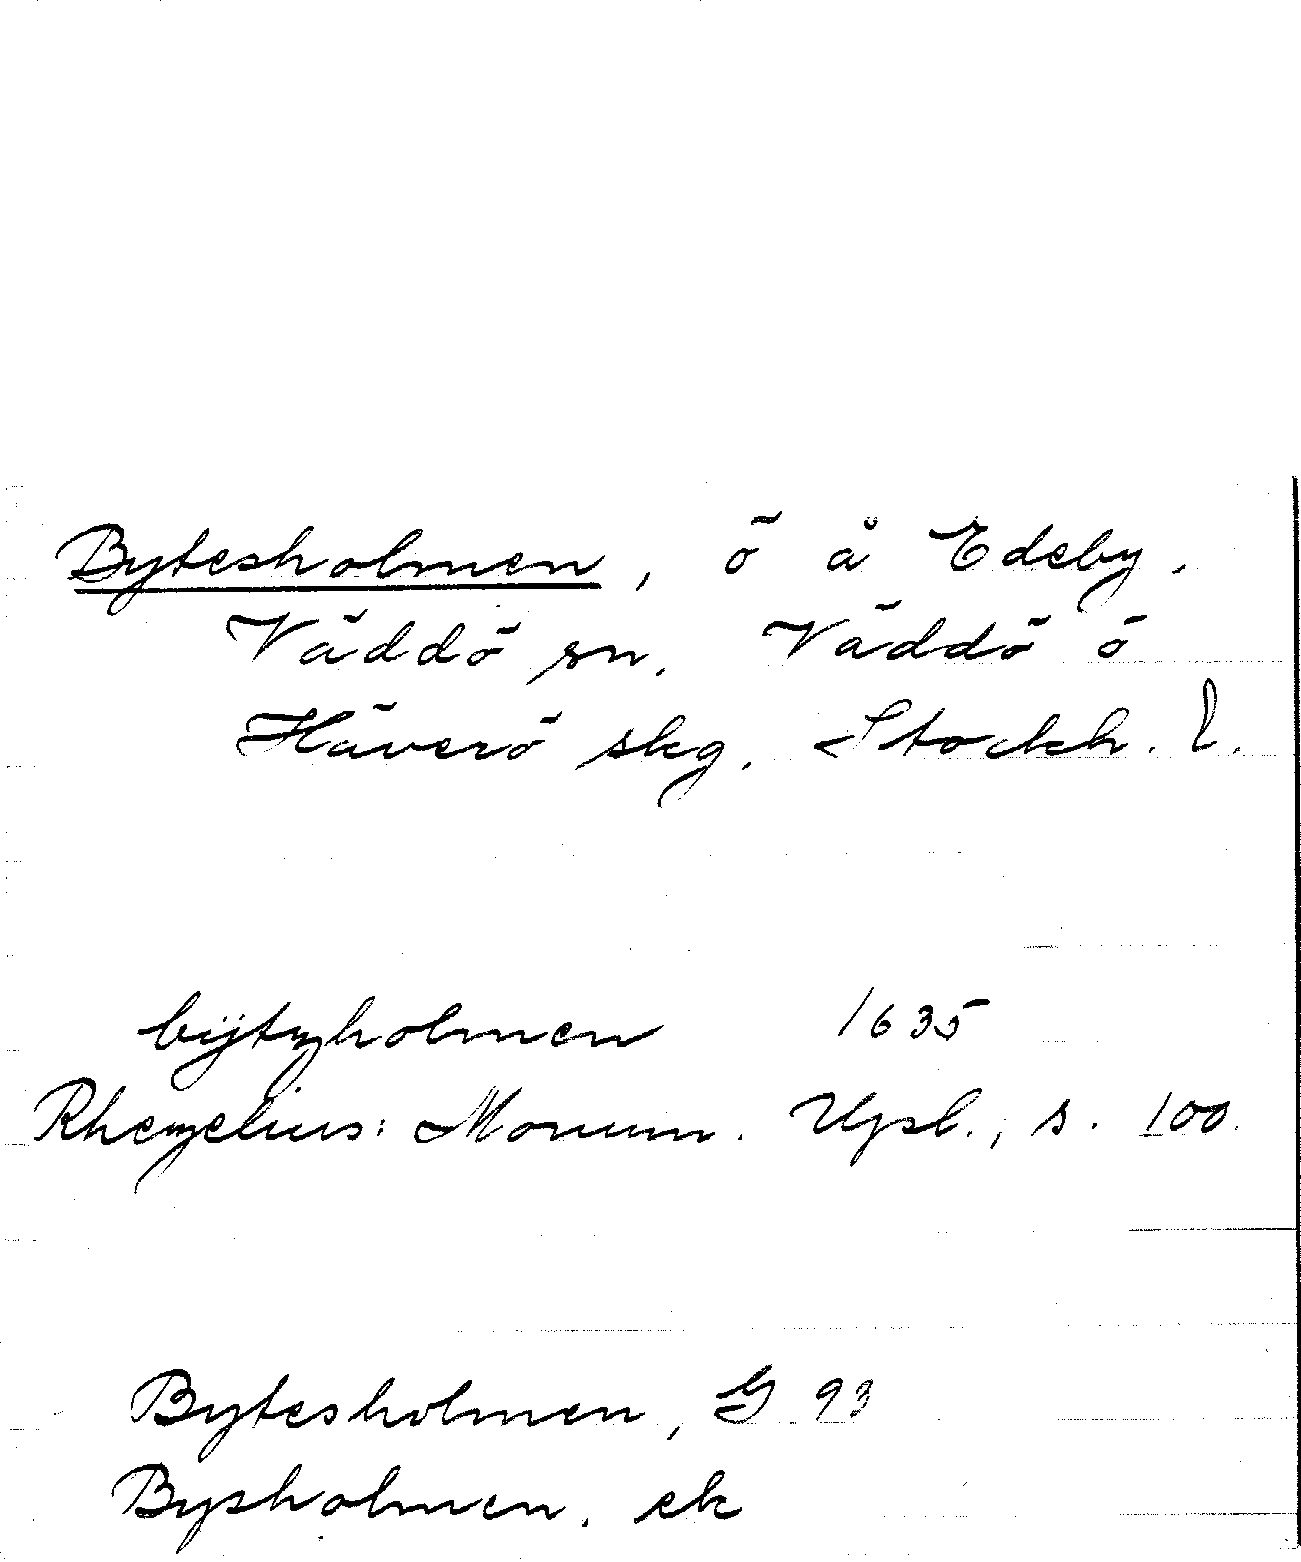 Bytesholmen, ö å Edeby.
Väddö sn. Väddö o
Häverö skg. Stockh. l.
bÿtzholmen 1635
Rhezelius: Monum. Upl., s. 100.
Bytesholmen, G 93
Bysholmen. ek